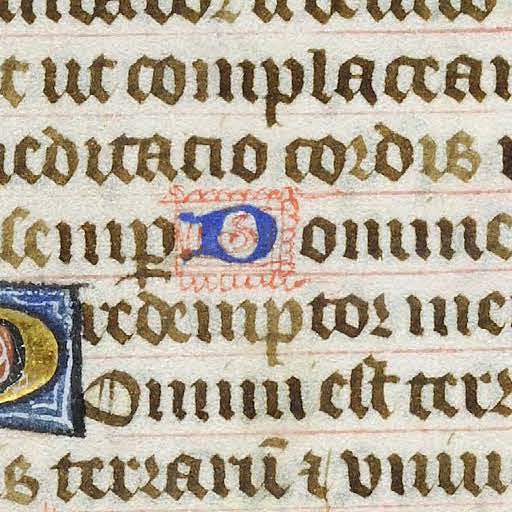 t ut complacean
meditacio cordis
semꝑ Domine
redemptor me
Domini est terr
s terrarū ⁊ vniu